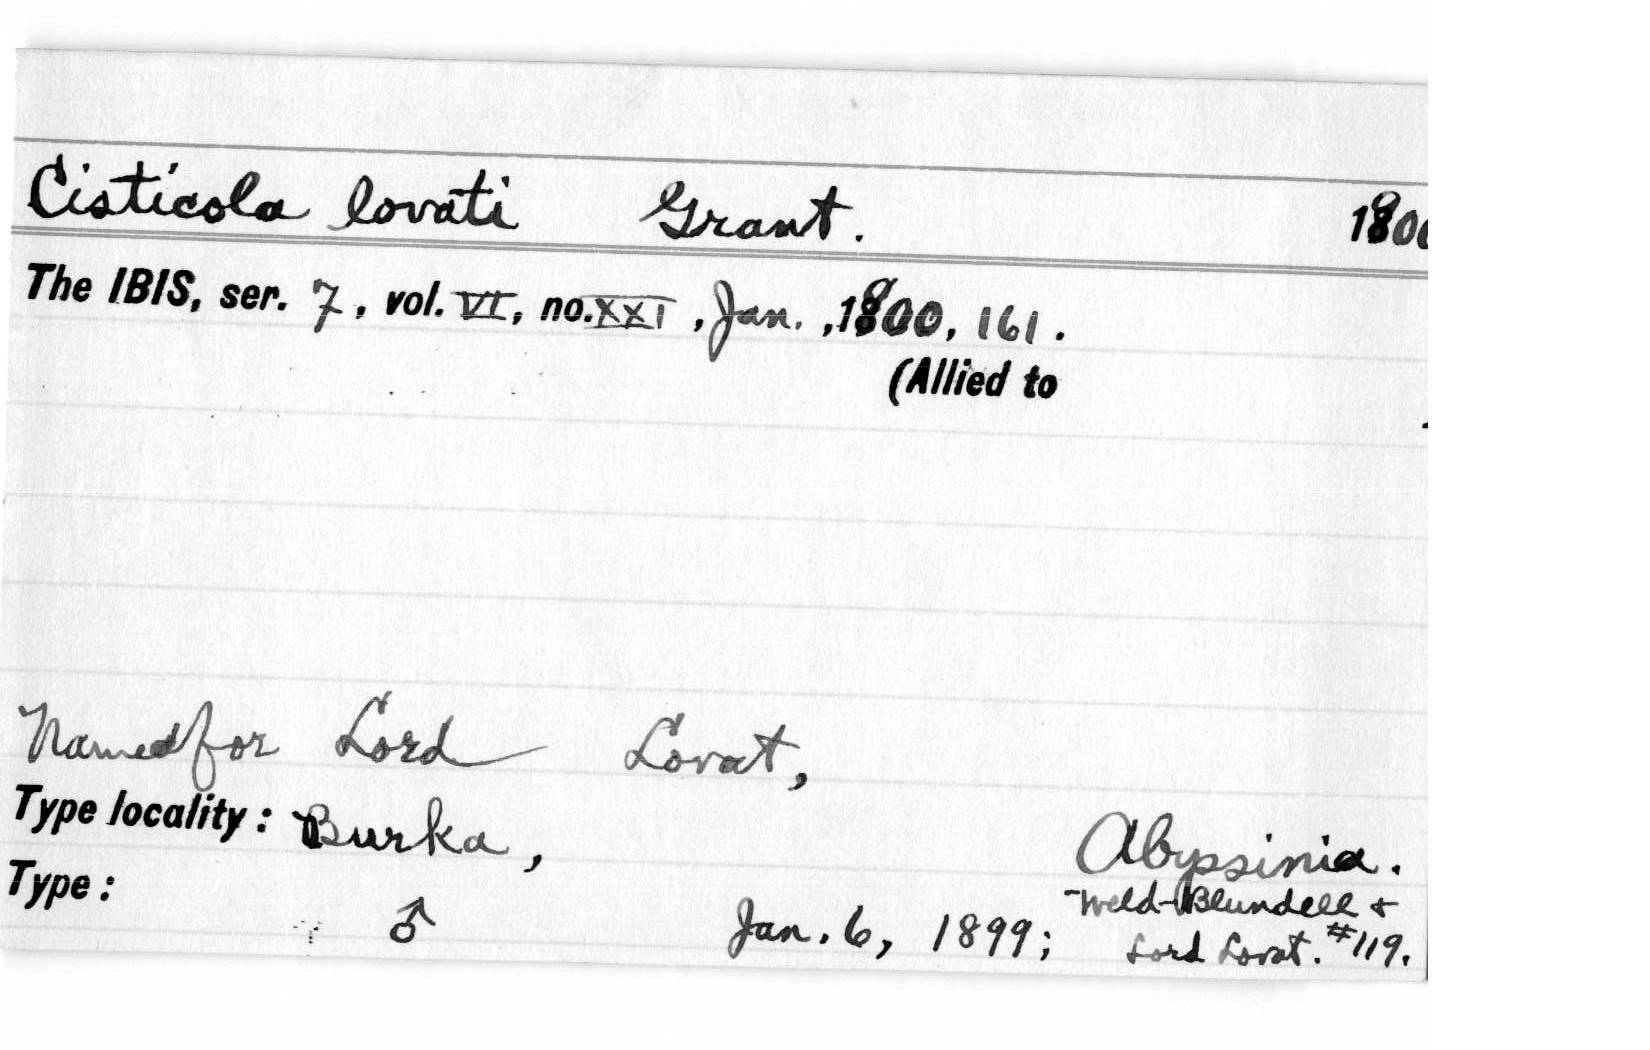 Cisticola lovati Grant. 1900
The IBIS, ser. 7, vol. VI, no. XXI, Jan., 1900, 161.
(Allied to
Named for Lord Lovat,
Type locality: Burka, Abyssinia.
Type: ♂ Jan. 6, 1899; Weld-Blundell &
Lord Lovat. #119.